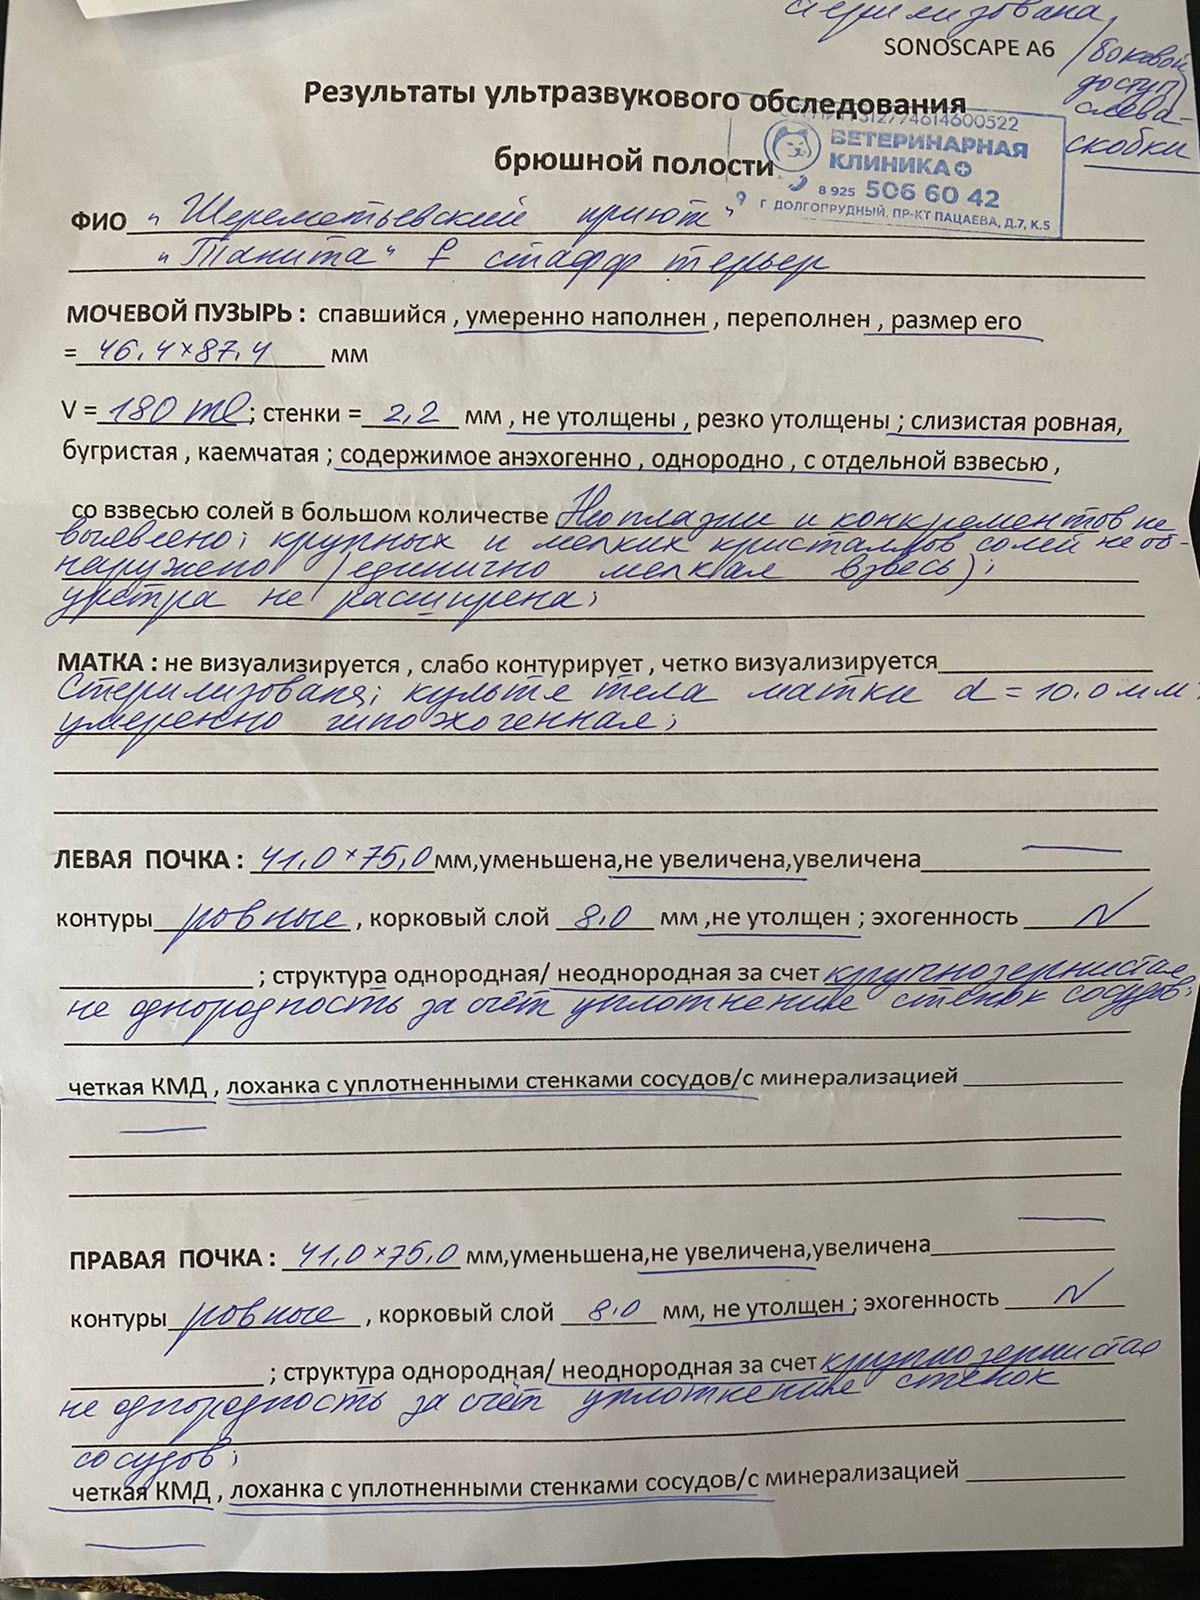 стерилизована,
SONOSCAPE A6
/боковой
доступ)
слева-
скобки
Результаты ультразвукового обследования
брюшной полости
4614600522
ВЕТЕРИНАРНАЯ
КЛИНИКА
8 925 506 60 42
Г ДОЛГОПРУДНЫЙ, ПР-КТ ПАЦАЕВА, Д.7, К.5
ФИО „Шереметьевский приют"
„Танита" f стафф терьер
МОЧЕВОЙ ПУЗЫРЬ : спавшийся , умеренно наполнен , переполнен , размер его
= 46,4×87,4 мм
V = 180 ml ; стенки = 2,2 мм , не утолщены , резко утолщены ; слизистая ровная,
бугристая , каемчатая ; содержимое анэхогенно , однородно , с отдельной взвесью ,
со взвесью солей в большом количестве Неоплазии и конкрементов не
выявлено; крупных и мелких кристаллов солей не об-
наружено (единично мелкая взвесь);
уретра не расширена;
МАТКА : не визуализируется , слабо контурирует , четко визуализируется
Стерилизована; культя тела матки d = 10,0 мм
умеренно гипоэхогенная;
ЛЕВАЯ ПОЧКА : 41,0×75,0 мм,уменьшена,не увеличена,увеличена
контуры ровные , корковый слой 8,0 мм ,не утолщен ; эхогенность N
; структура однородная/ неоднородная за счет крупнозернистая
не однородность за счёт уплотнение стенок сосудов;
четкая КМД , лоханка с уплотненными стенками сосудов/с минерализацией
ПРАВАЯ ПОЧКА : 41,0×75,0 мм,уменьшена,не увеличена,увеличена
контуры ровные , корковый слой 8,0 мм, не утолщен ; эхогенность N
; структура однородная/ неоднородная за счет крупнозернистая
не однородность за счёт уплотнение стенок
сосудов;
четкая КМД , лоханка с уплотненными стенками сосудов/с минерализацией